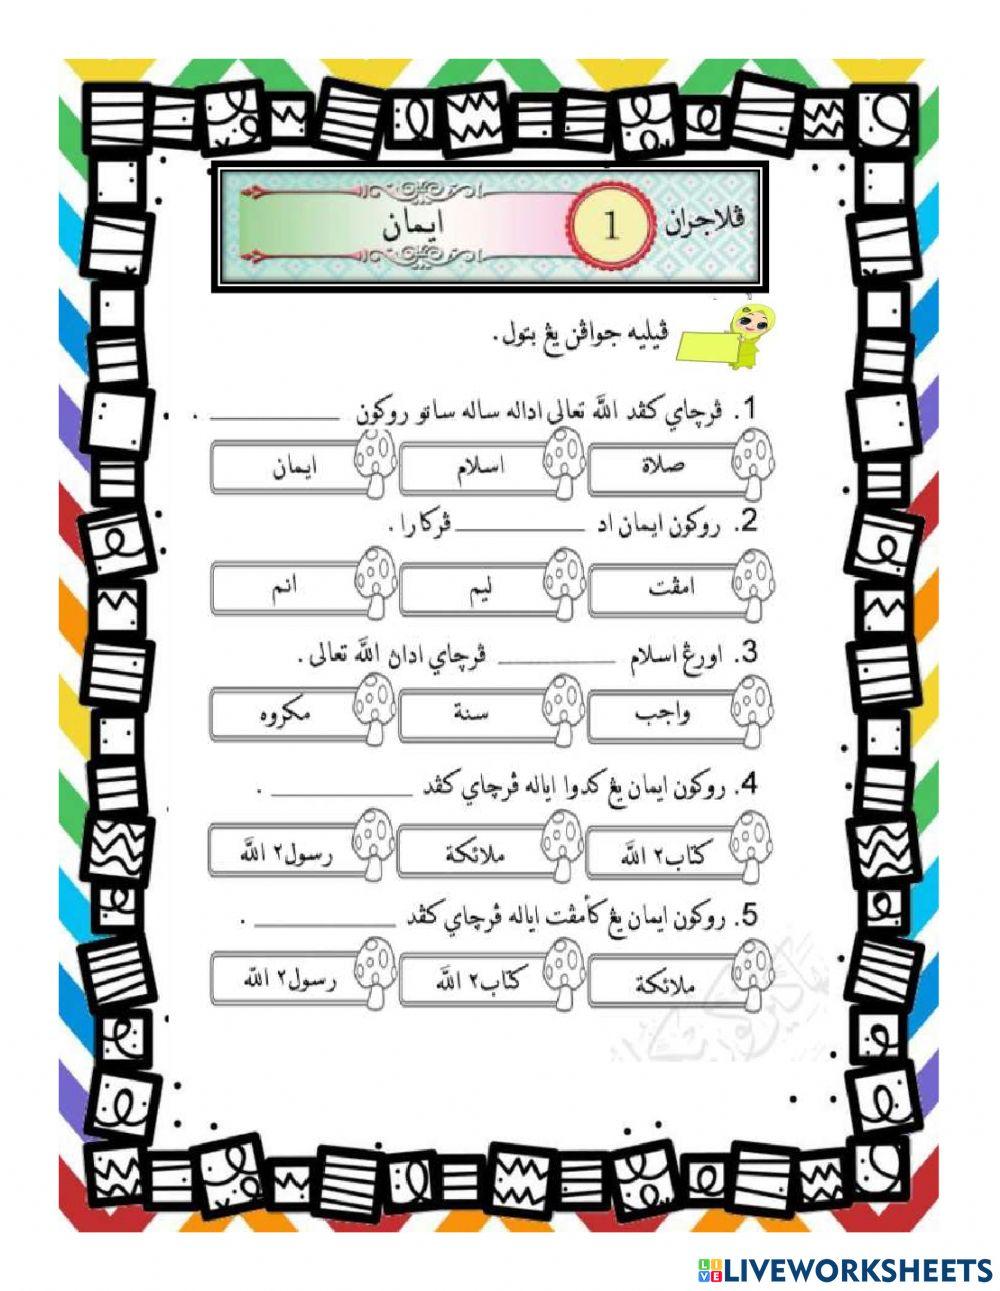 ڤلاجرن 1 ايمان
ڤيليه جواڤن يڠ بتول.
1. ڤرچاي كڤد الله تعالى اداله ساله ساتو روكون ________ .
صلاة اسلام ايمان
2. روكون ايمان اد ________ ڤركارا .
امڤت ليم انم
3. اورڠ اسلام ________ ڤرچاي اداڽ الله تعالى.
واجب سنة مكروه
4. روكون ايمان يڠ كدوا اياله ڤرچاي كڤد ________ .
كتاب٢ الله ملائكة رسول٢ الله
5. روكون ايمان يڠ كأمڤت اياله ڤرچاي كڤد ________ .
ملائكة كتاب٢ الله رسول٢ الله
LIVEWORKSHEETS